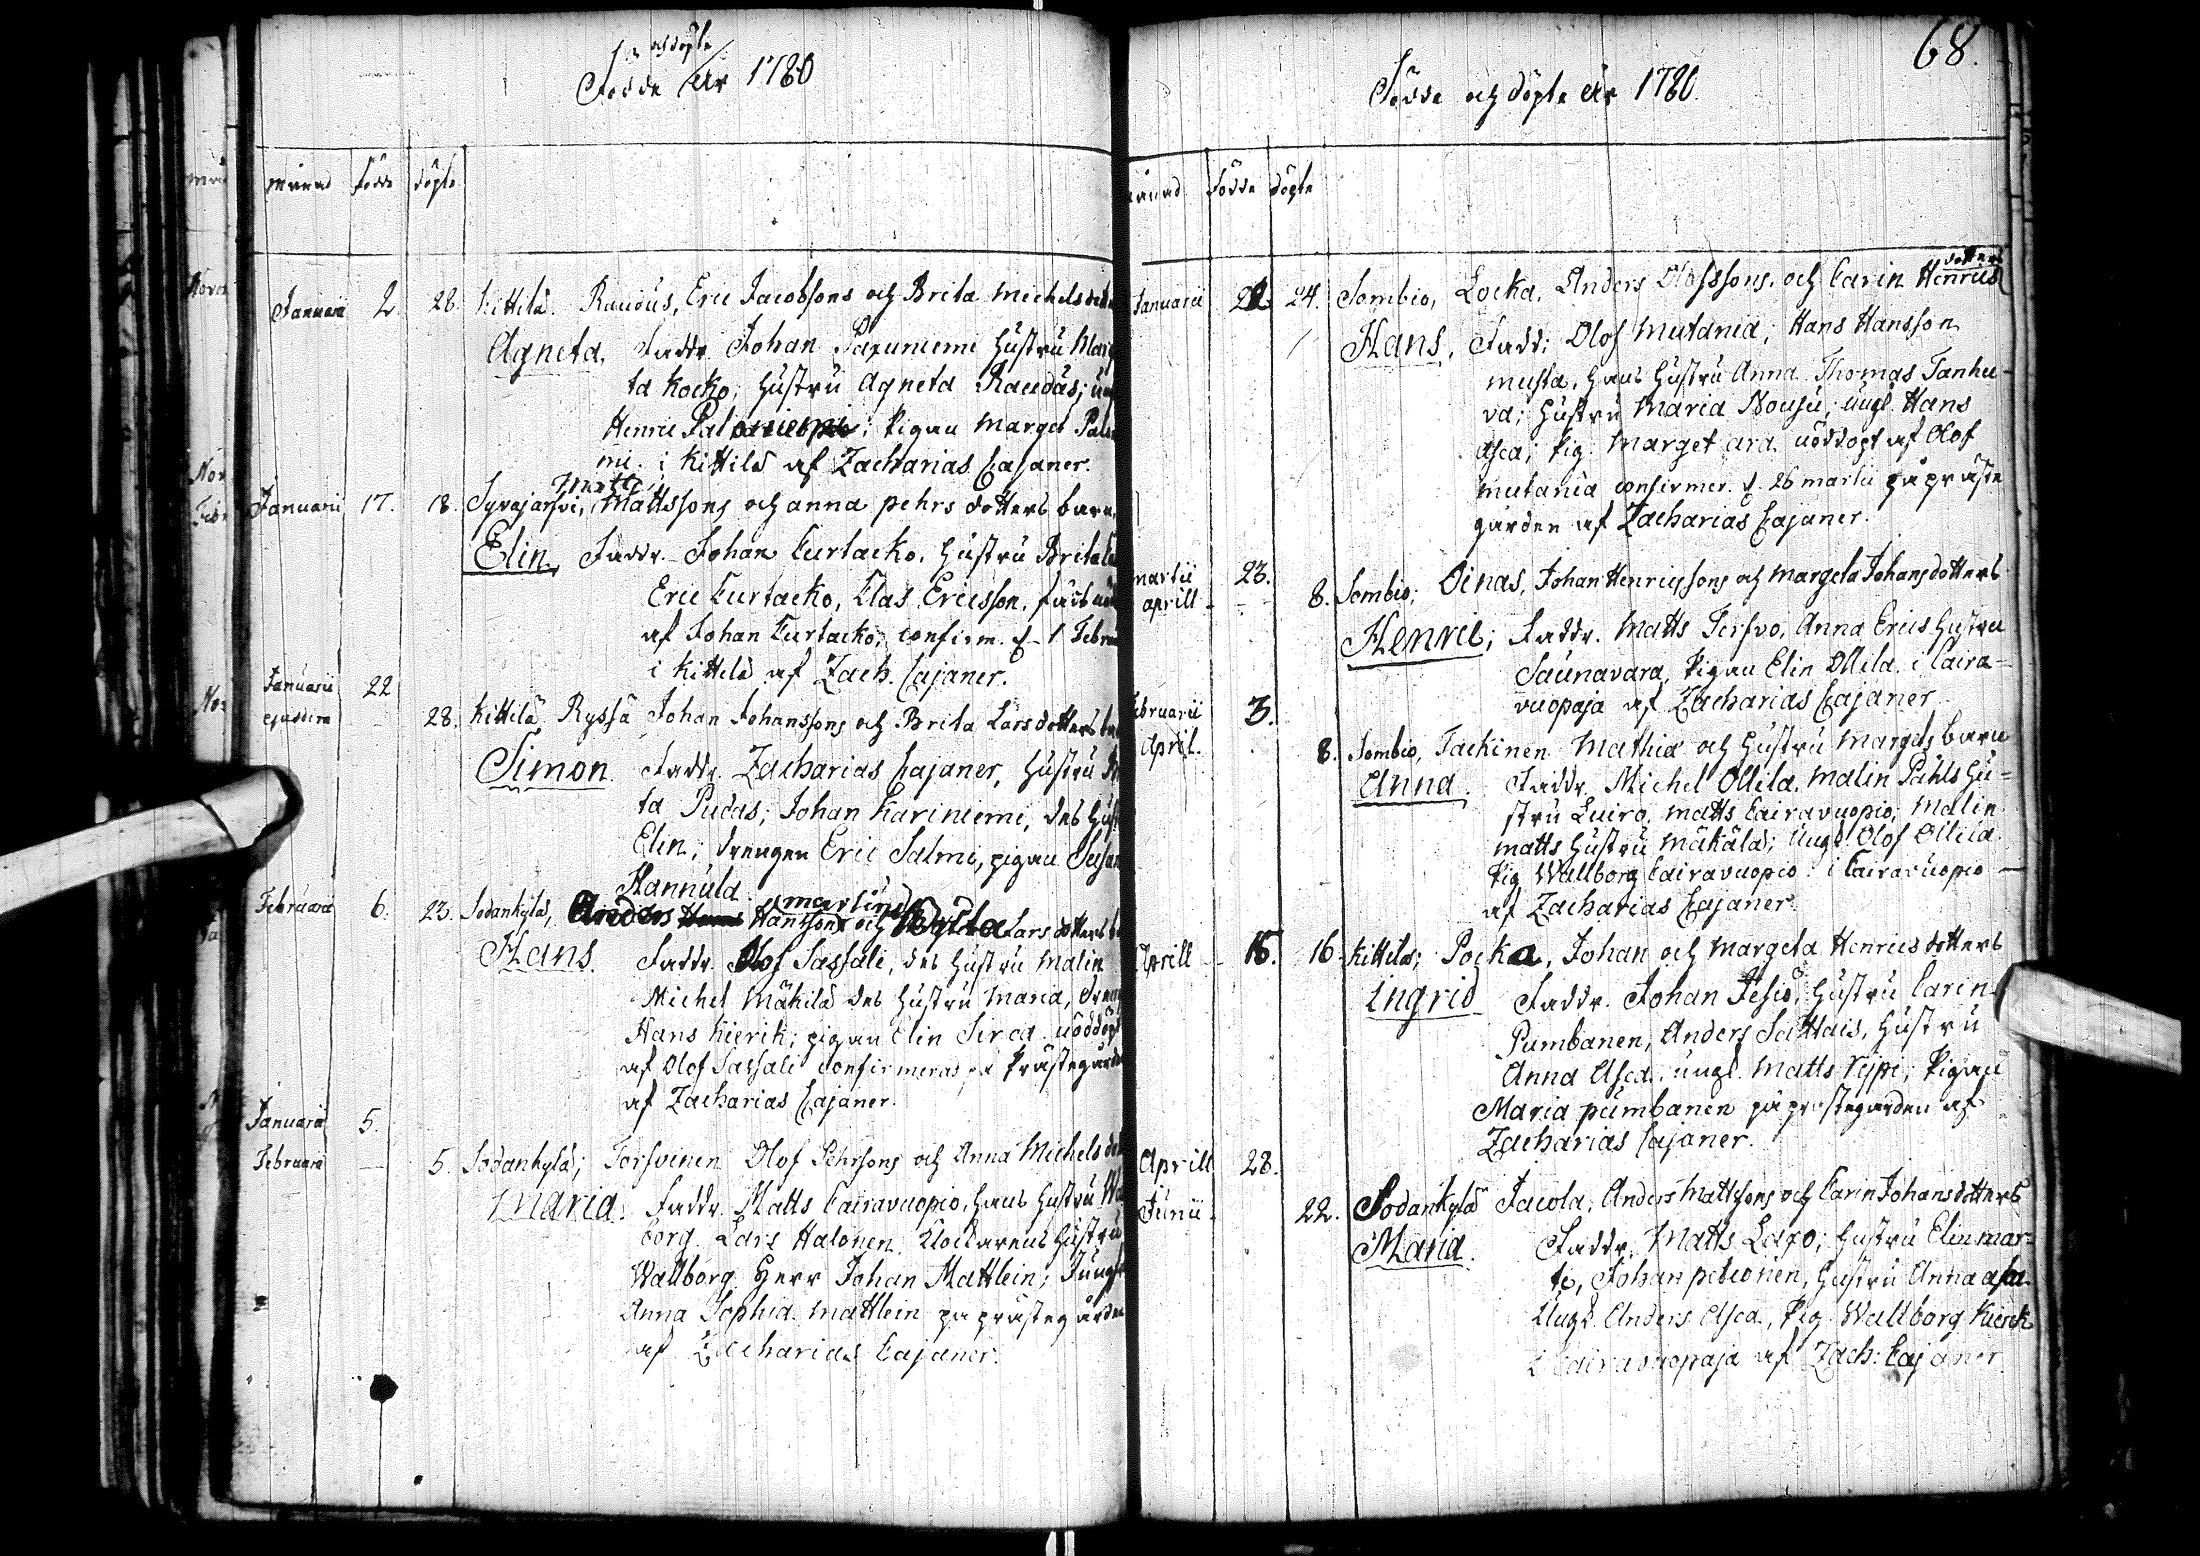 och döpte
Födde År 1780
månad födde döpte
Januarii 2 28. Kittilä. Raudus, Eric Jacobsons och Brita Michels
Agneta. Faddr. Johan Papuniemi Hustru
ta Kocko; Hustru Agneta Raudus;
Henric; Pigan Marget
mi. i Kittilä af Zacharias Cajaner.
Matts
Januarii 17. 18. Syväjärfvi, Mattssons och Anna Pehrs dotters barn,
Elin, Faddr. Johan Curtacko, Hustru
Eric Curtacko, Clas Ericsson.
af Johan Curtacko; confirm. d. 1
i Kittilä af Zach. Cajaner.
Januarii 22
ejusdem 28. Kittilä Ryssä Johan Johanssons och Brita Larsdotters
Simon. Faddr. Zacharias Cajaner, Hustru
ta Pudas; Johan Kariniemi, des
Elin; drengen Eric Salmi, pigan
Hannula.
Martini
Februarii 6. 23. Sodankylä, Anders Hanssons och Lars dotters
Hans. Faddr. Olof Sassali, des Hustru Malin
Michel Mäkilä des Hustru Maria,
Hans Kierik; pigan Elin Sirca.
af Olof Sassali confirmeras på Prästegården
af Zacharias Cajaner.
Januarii 5.
Februarii — 5. Sodankylä; Torfvinen Olof Pehrsons och Anna Michels
Maria. Faddr. Matts Cairavuopio, hans Hustru
borg. Lars Halonen, Klockarens Hustru
Wallborg. Herr Johan Mattlein;
Anna Sophia Mattlein på prästegården
af Zacharias Cajaner.
68.
Födde och döpte År 1780.
Födde döpte
dotters
Januarii 24. Sombio, Locka, Anders Olofssons, och Carin Henrics
Hans, Fadd; Olof Mutania; Hans Hansson
Musta, hans Hustru Anna. Thomas Tanhu-
va; Hustru Maria Nousu; Ungl. Hans
Asca; Pig. Marget Ara. nöddöpt af Olof
Mutania confirmer. d. 26 Martii på präste
gården af Zacharias Cajaner.
Martii 23.
Aprill 8. Sombio; Oinas, Johan Henricssons och Margeta Johansdotters
Henric; Faddr. Matts Terfvo, Anna Erics Hustru
Saunavara, Pigan Elin Ollila. i Caira-
vuopaja af Zacharias Cajaner
3.
April. 8. Sombio, Tackinen Mathia och Hustru Margets barn
Anna. Faddr. Michel Ollila, Malin Påhls Hu-
stru Luiro, Matts Cairavuopio; Malin
Matts Hustru Mäkälä; Ungd. Olof Ollila
Pig Wallborg Cairavuopio. i Cairavuopio
af Zacharias Cajaner.
Aprill 16. Kittilä; Pocka, Johan och Margeta Henricsdotters
Ingrid Faddr. Johan Jesiö; Hustru Carin
Pumbanen; Anders Sattais, Hustru
Anna Asca. ungl. Matts; Pigan
Maria Pumbanen på prästegården af
Zacharias Cajaner.
Aprill 28.
Junii. 22. Sodankylä Jacola, Anders Mattssons och Carin Johansdotters
Maria. Faddr. Matts Lapo; Hustru Elin
Johan, Hustru Anna Asca.
Ungd. Anders Asca., Pig. Wallborg Kierik
i Cairavuopaja af Zach: Cajaner